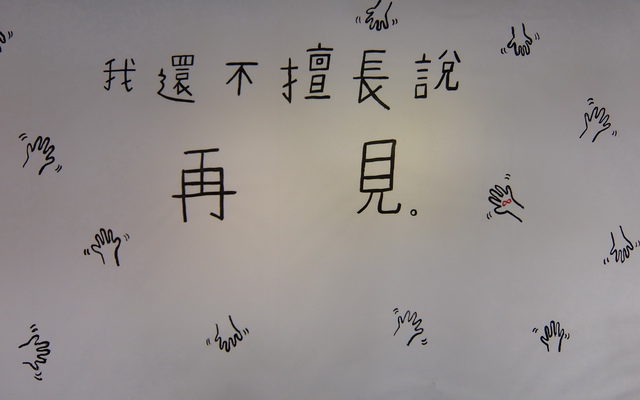 我還不擅長說
再見。